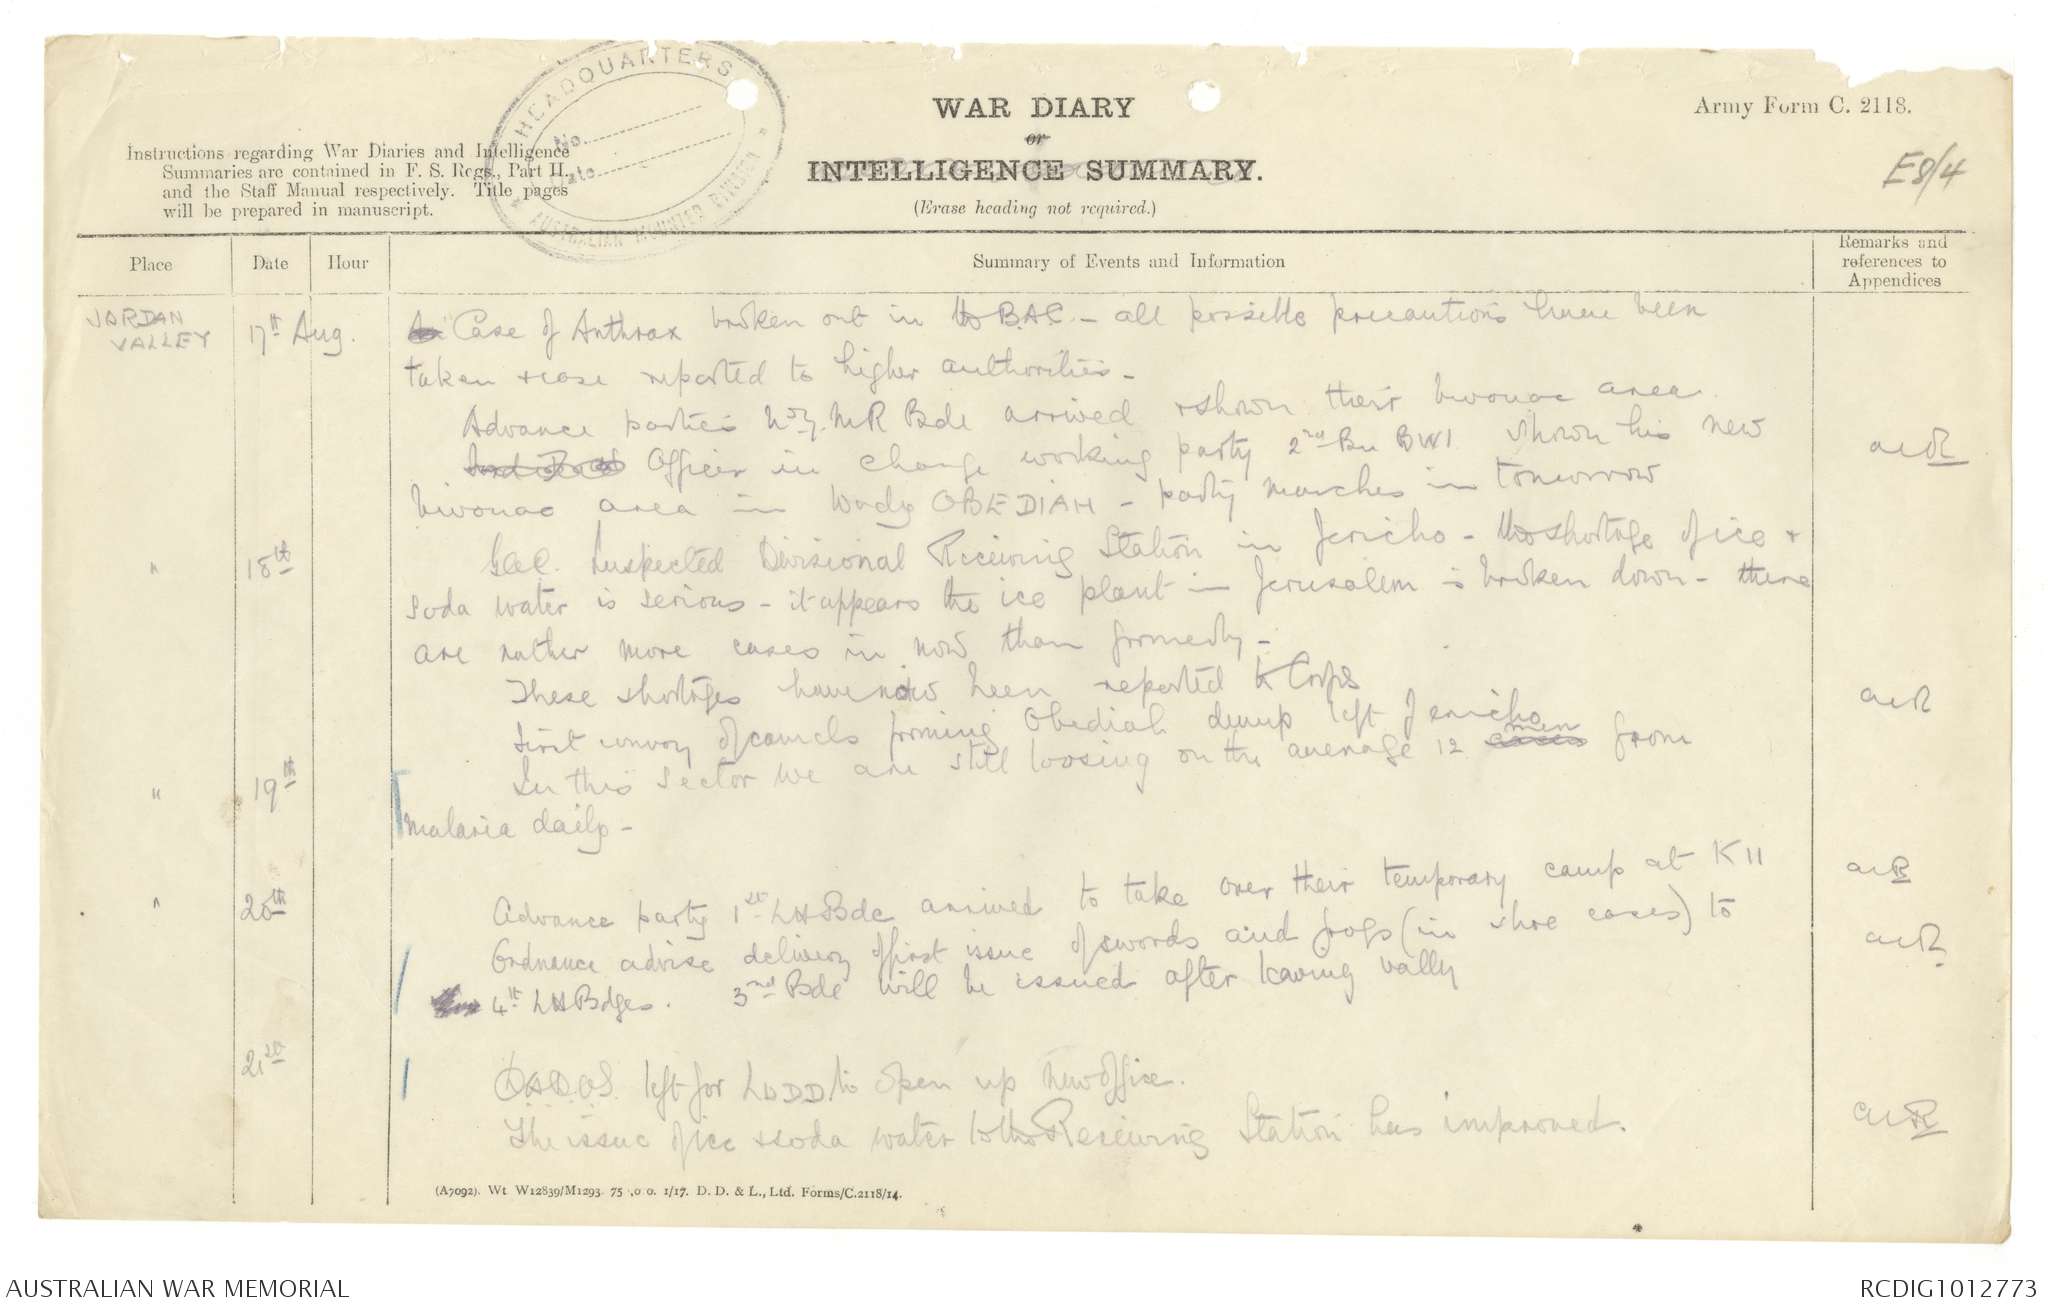 HEADQUARTERS
No.
Date
AUSTRALIAN MOUNTED DIVISION
WAR DIARY
or
INTELLIGENCE SUMMARY.
(Erase heading not required.)
Army Form C. 2118.
E8/4
Instructions regarding War Diaries and Intelligence
Summaries are contained in F. S. Regs., Part II.,
and the Staff Manual respectively. Title pages
will be prepared in manuscript.
Place
Date
Hour
Summary of Events and Information
Remarks and
references to
Appendices
JARDAN
VALLEY
17th Aug.
Case of Anthrax broken out in the BAC - all possible precautions have been
taken & case reported to higher authorities -
Advance parties NZ.MR Bde arrived & shown their bivouac area
Officer in charge working party 2nd Bn BWI shown his new
bivouac area in Wady OBEDIAH - party marches in tomorrow
" 18th
GOC. Inspected Divisional Receiving Station in Jericho - the shortage of ice &
soda water is serious - it appears the ice plant in Jerusalem is broken down - there
are rather more cases in now than formerly -
These shortages have now been reported to Corps
First convoy of camels forming Obediah dump left Jericho
" 19th
In this sector we are still loosing on the average 12 men from
malaria daily -
" 20th
Advance party 1st LHBde arrived to take over their temporary camp at K11
Ordnance advise delivery of first issue of swords and frogs (in shoe cases) to
4th LHBdges. 3rd Bde will be issued after leaving vally
21st
D.A.D.O.S. left for LUDD to open up new office.
The issue of ice & soda water to the Receiving Station has improved.
(A7092). Wt W12839/M1293 75 ,0 0. 1/17. D. D. & L., Ltd. Forms/C.2118/14.
AUSTRALIAN WAR MEMORIAL
RCDIG1012773